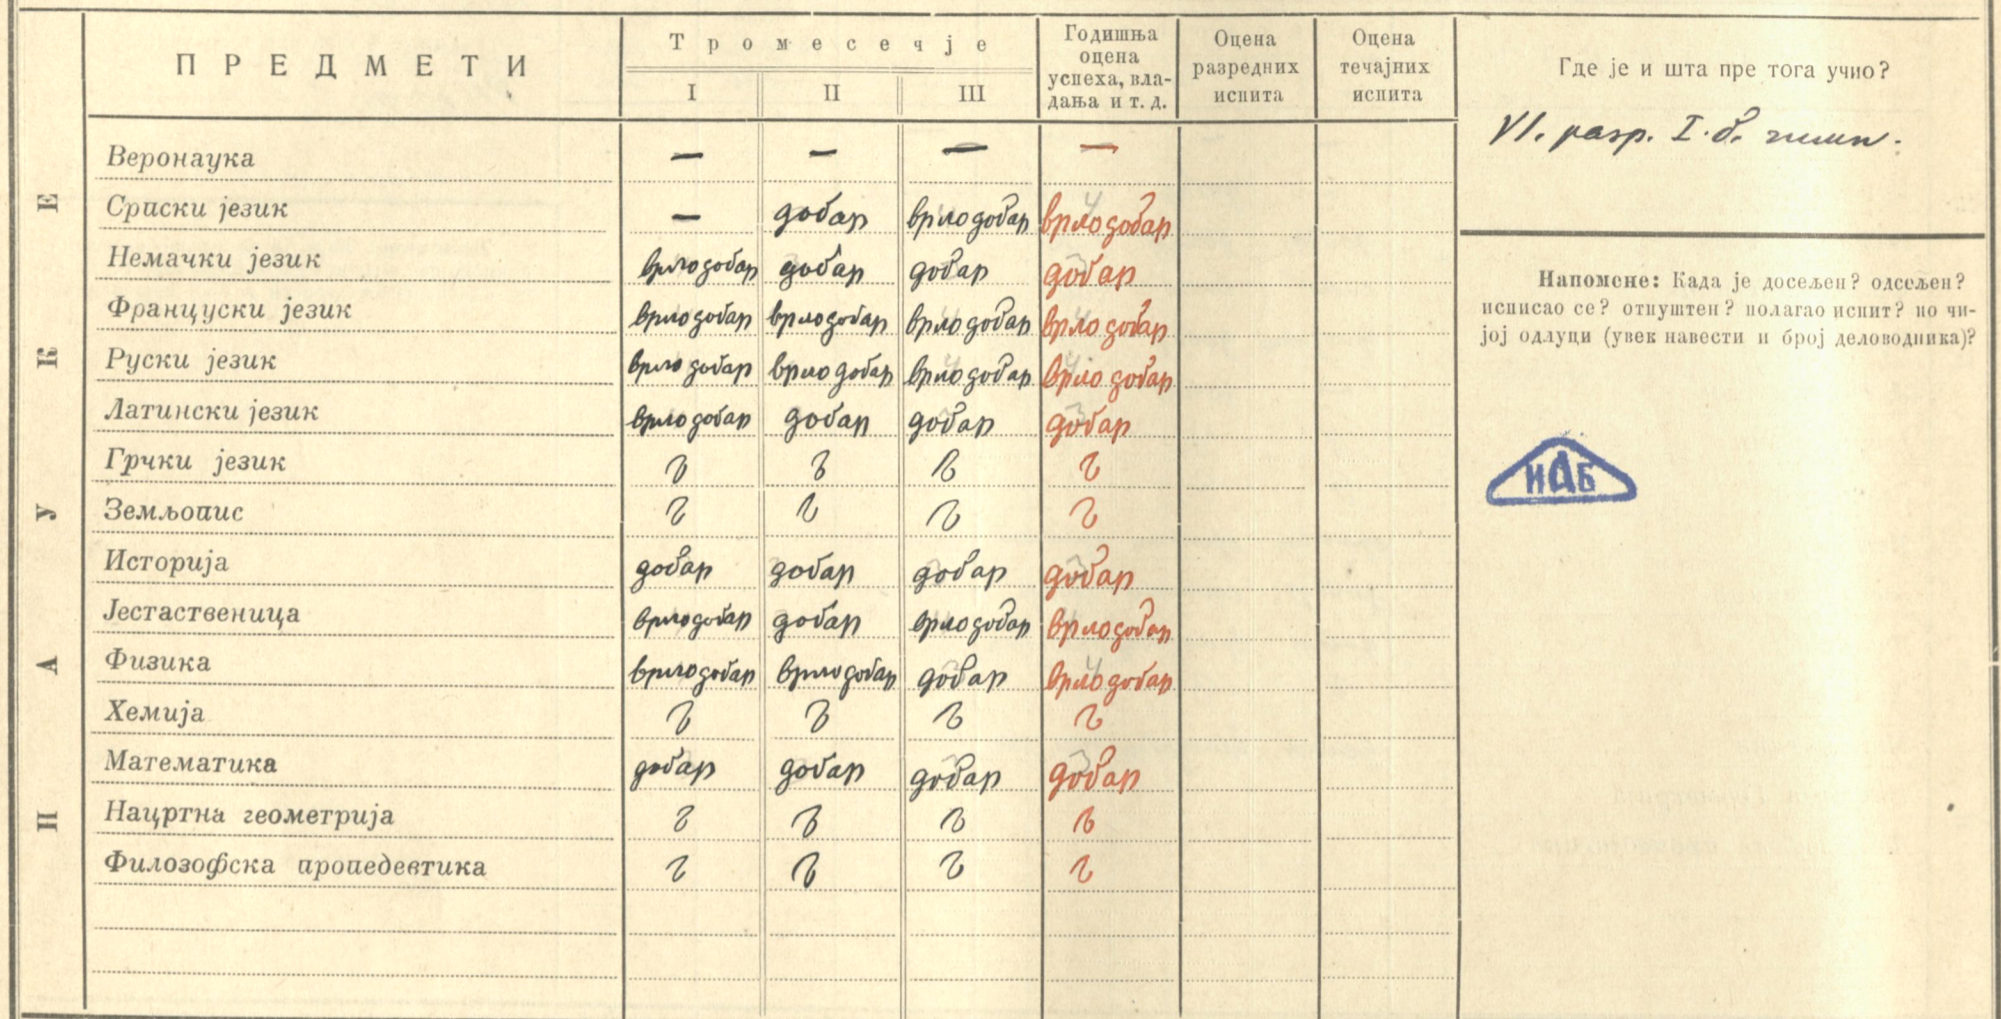 ПРЕДМЕТИ
Тромесечје
I II III
Годишња оцена успеха, вла-дања и т. д.
Оцена разредних испита
Оцена течајних испита
Где је и шта пре тога учио?
VI. разр. I. б. гимн.
НАУКЕ
Веронаука — — — —
Српски језик — добар врло добар врло добар
Немачки језик врло добар добар добар добар
Француски језик врло добар врло добар врло добар врло добар
Руски језик врло добар врло добар врло добар врло добар
Латински језик врло добар добар добар добар
Грчки језик
Земљопис
Историја добар добар добар добар
Јестаственица врло добар добар врло добар врло добар
Физика врло добар врло добар добар врло добар
Хемија
Математика добар добар добар добар
Нацртна геометрија
Филозофска пропедевтика
Напомене: Када је досељен? одсељен?
исписао се? отпуштен? полагао испит? по чи-
јој одлуци (увек навести и број деловодника)?
ИАБ